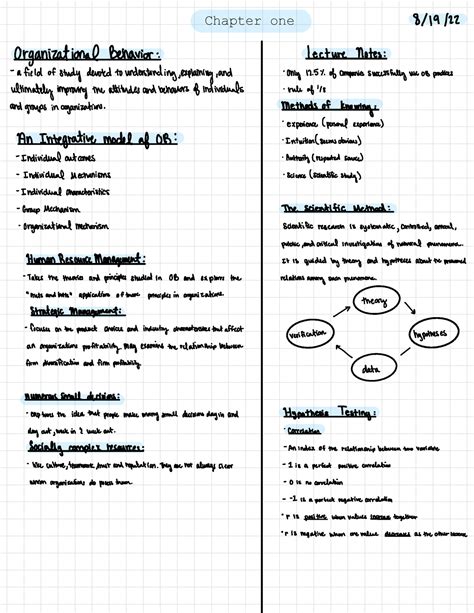 Chapter one
8/19/22
Organizational Behavior:
- a field of study devoted to understanding, explaining, and
ultimately improving the attitudes and behaviors of individuals
and groups in organizations.
An Integrative model of OB:
- Individual outcomes
- Individual Mechanisms
- Individual Characteristics
- Group Mechanism
- Organizational mechanism
Human Resource Management:
- Takes the theories and principles studied in OB and explores the
"nuts and bolts" application of those principles in organizations.
Strategic Management:
- focuses on the product choices and industry characteristics that affect
an organizations profitability. May examine the relationship between
firm diversification and firm profitability.
numerous small decisions:
- captures the idea that people make many small decisions day in and
day out, week in & week out.
Socially complex resources:
- like culture, teamwork, trust and reputation. They are not always clear
when organizations do posess them.
Lecture Notes:
· Only 12.5% of companies successfully use OB practices
· rule of 1/8
Methods of knowing:
· experience (personal experience)
· Intuition (seems obvious)
· Authority (reputed source)
· Science (scientific study)
The Scientific Method:
Scientific research is systematic, controlled, amoral,
public, and critical investigation of natural phenomena.
It is guided by theory and hypotheses about the presumed
relations among such phenomena.
theory
verification
hypotheses
data
Hypothesis Testing:
· Correlation
- An index of the relationship between two variable
- 1 is a perfect positive correlation
- 0 is no correlation
- -1 is a perfect negative correlation
· r is positive when values increase together
· r is negative when one value decreases as the other